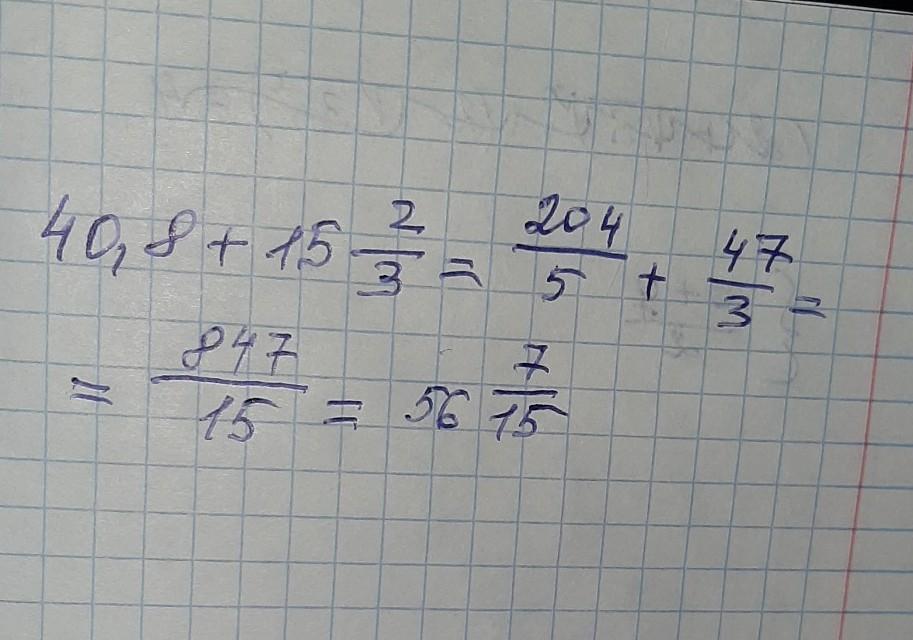 40,8 + 15 2/3 = 204/5 + 47/3 =
= 847/15 = 56 7/15